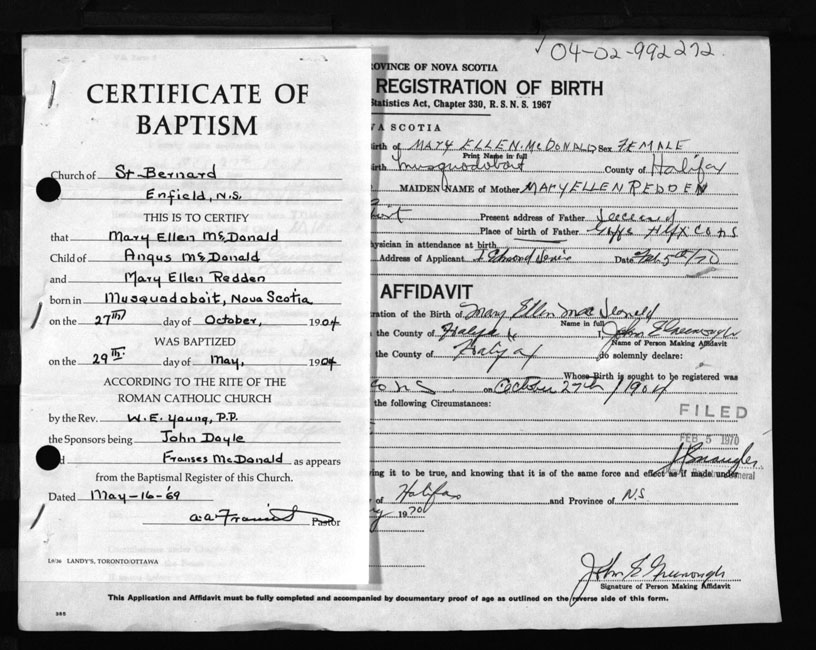 04-02-992272
CERTIFICATE OF
BAPTISM
Church of St. Bernard
Enfield, N.S.
THIS IS TO CERTIFY
that Mary Ellen McDonald
Child of Angus McDonald
and Mary Ellen Redden
born in Musquodoboit, Nova Scotia
on the 27TH day of October, 1904
WAS BAPTIZED
on the 29TH. day of May, 1904
ACCORDING TO THE RITE OF THE
ROMAN CATHOLIC CHURCH
by the Rev. W. E. Young, P.P.
the Sponsors being John Doyle
Franses McDonald as appears
from the Baptismal Register of this Church.
Dated May-16-'69
Pastor
LANDY'S, TORONTO/OTTAWA
ROVINCE OF NOVA SCOTIA
REGISTRATION OF BIRTH
Statistics Act, Chapter 330, R. S. N. S. 1967
VA SCOTIA
irth of MARY ELLEN McDONALD Sex FEMALE
Print Name in full
irth Musquodoboit County of Halifax
MAIDEN NAME of Mother MARY ELLEN REDDEN
Present address of Father deceased
Place of birth of Father Hfx Co NS
hysician in attendance at birth
Address of Applicant Date Feb 5th/70
AFFIDAVIT
ration of the Birth of Mary Ellen Mac Donald
Name in full
n the County of Halifax I, John E Greenough
Name of Person Making Affidavit
the County of Halifax do solemnly declare:
Whose Birth is sought to be registered was
Co N S. on October 27th/1904
the following Circumstances:
FILED
FEB 5 1970
ing it to be true, and knowing that it is of the same force and effect as if made under
of Halifax and Province of N.S
1970
John E Greenough
Signature of Person Making Affidavit
This Application and Affidavit must be fully completed and accompanied by documentary proof of age as outlined on the reverse side of this form.